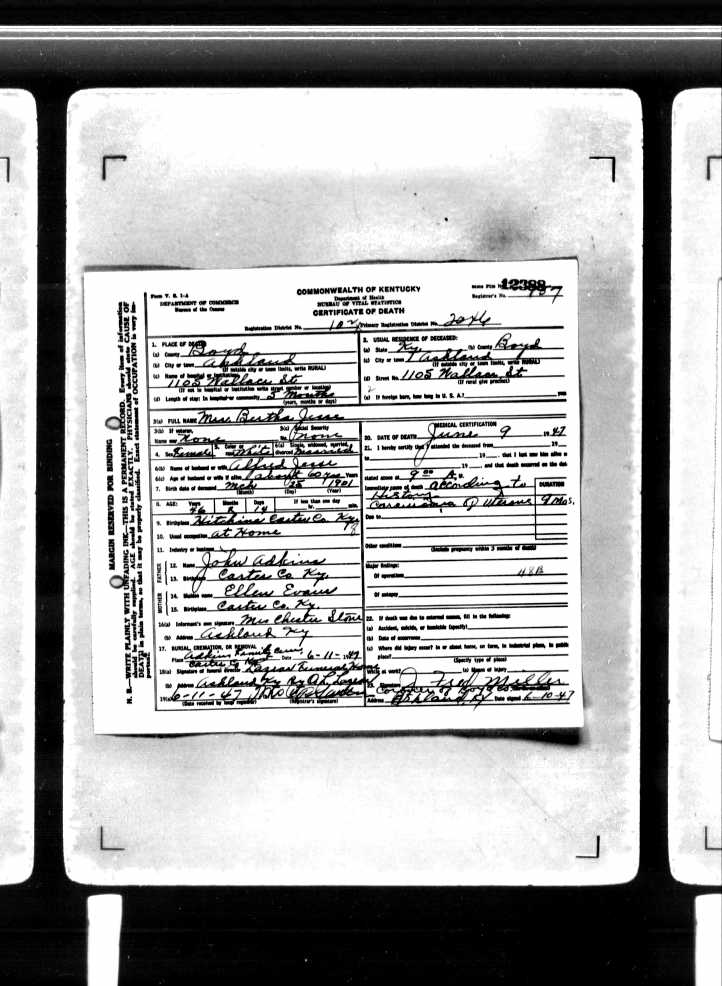 Form V. S. 1-A
DEPARTMENT OF COMMERCE
Bureau of the Census
COMMONWEALTH OF KENTUCKY
Department of Health
BUREAU OF VITAL STATISTICS
CERTIFICATE OF DEATH
State File No. 12388
Registrar's No.
Registration District No. Primary Registration District No. 2046
1. PLACE OF DEATH
(a) County Boyd
(b) City or town Ashland
(If outside city or town limits, write RURAL)
(c) Name of hospital or institution:
1105 Wallace St
(If not in hospital or institution write street number or location)
(d) Length of stay: In hospital or community 5 Months
(years, months or days)
2. USUAL RESIDENCE OF DECEASED:
(a) State Ky (b) County Boyd
(c) City or town Ashland
(If outside city or town limits, write RURAL)
(d) Street No. 1105 Wallace St
(If rural give precinct)
(e) If foreign born, how long in U. S. A.? yrs
3(a) FULL NAME Mrs. Bertha Jesse
3(b) If veteran, name war None 3(c) Social Security No. None
4. Sex Female 5. Color or race White 6(a) Single, widowed, married, divorced Married
6(b) Name of husband or wife Alfred Jesse
6(c) Age of husband or wife if alive about 60 yrs Years
7. Birth date of deceased Mch 25 1901
(Month) (Day) (Year)
8. AGE: Years Months Days If less than one day
46 14 hr. min.
9. Birthplace Hitchins Carter Co. Ky
10. Usual occupation at Home
11. Industry or business
FATHER
12. Name John Adkins
13. Birthplace Carter Co Ky.
MOTHER
14. Maiden name Ellen Evans
15. Birthplace Carter Co. Ky.
16(a) Informant's own signature Mrs Chester Stone
(b) Address Ashland Ky
17. BURIAL, CREMATION, OR REMOVAL
Place Adkins Family Cem, Carter Co Ky Date 6-11-1947
18(a) Signature of funeral director Lazear Funeral Home
(b) Address Ashland Ky By
19(a) 6-11-47
(Date received by local registrar) (Registrar's signature)
MEDICAL CERTIFICATION
20. DATE OF DEATH June 9 1947
21. I hereby certify that I attended the deceased from 19
to 19 that I last saw him alive on
19 and that death occurred on the date
stated above at 9 00 A. M.
Immediate cause of death according to DURATION
History
Carcinoma of Uterus 9 Mos.
Due to
Other conditions
(Include pregnancy within 3 months of death)
Major findings:
Of operations 48B
Of autopsy
22. If death was due to external causes, fill in the following:
(a) Accident, suicide, or homicide (specify)
(b) Date of occurrence
(c) Where did injury occur? in or about home, on farm, in industrial place, in public
place?
(Specify type of place)
While at work? (e) Means of injury
23. Signature J. Fred Miller
Coroner of Boyd Co
Address Ashland Ky Date signed 6-10-47
MARGIN RESERVED FOR BINDING
N. B.—WRITE PLAINLY WITH UNFADING INK—THIS IS A PERMANENT RECORD. Every item of information
should be carefully supplied. AGE should be stated EXACTLY. PHYSICIANS should state CAUSE OF
DEATH in plain terms, so that it may be properly classified. Exact statement of OCCUPATION is very im-
portant.